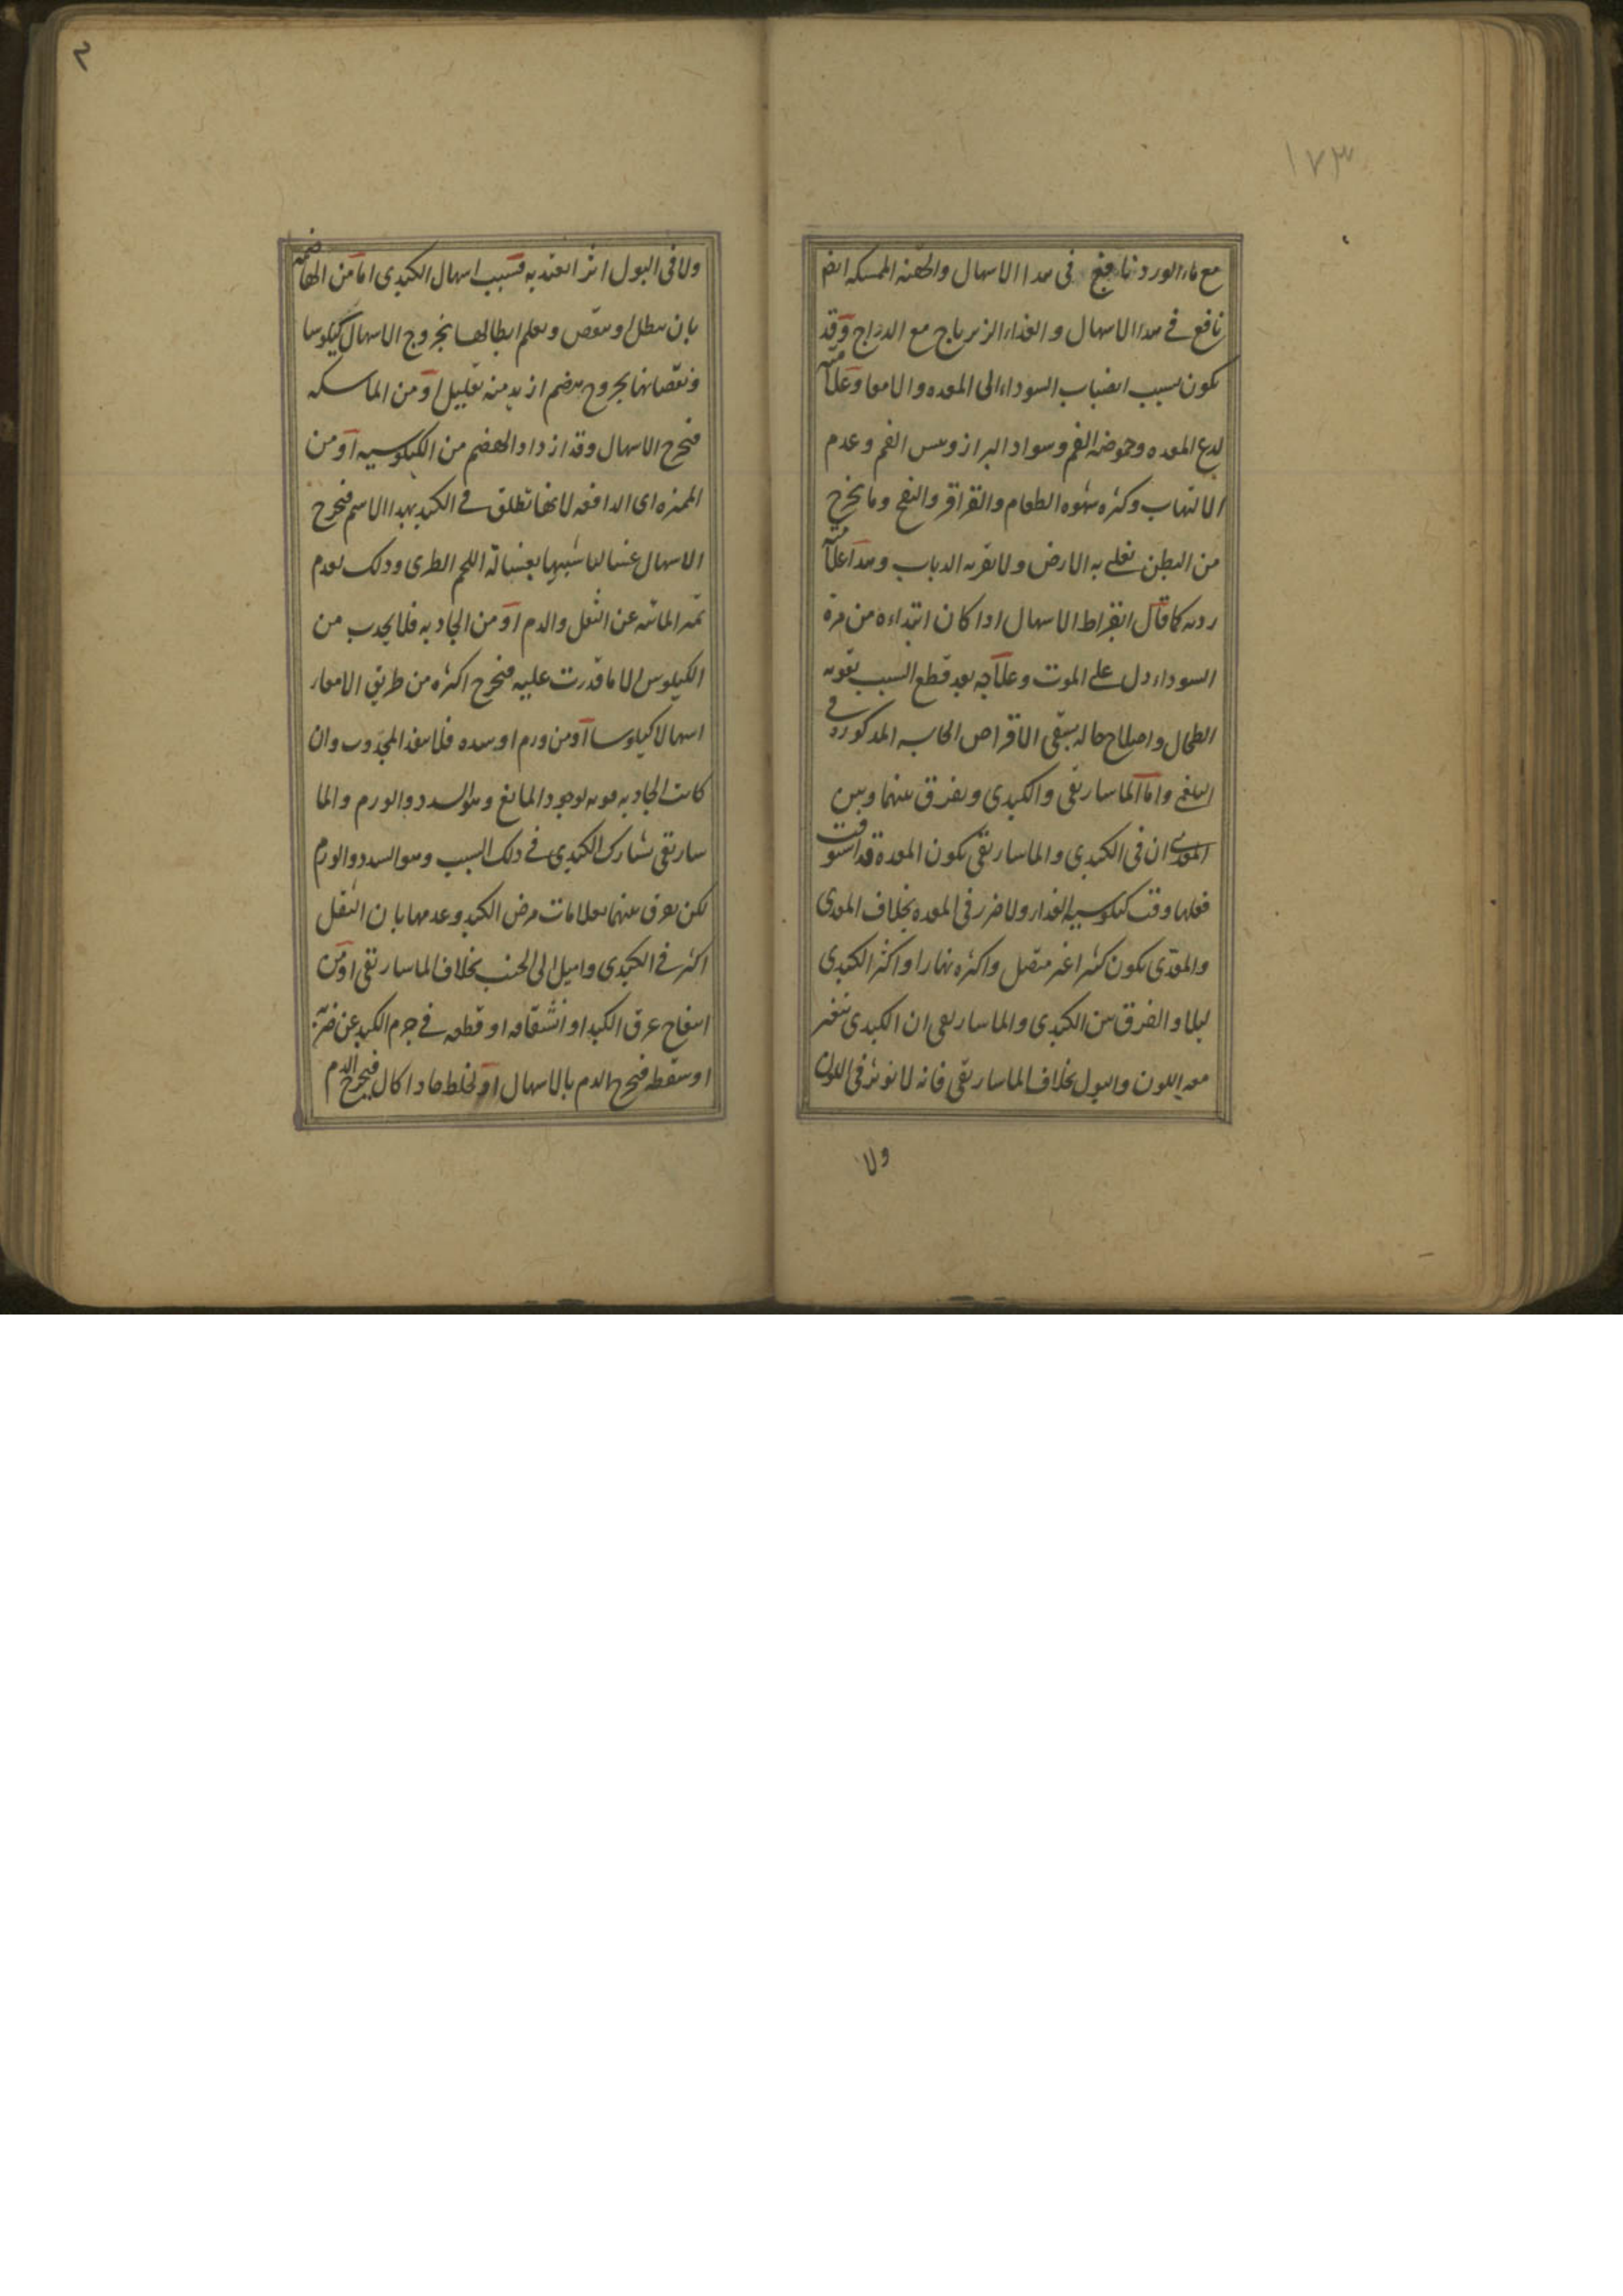 ١٧٣
مع ماء الورد نافع فى هدا الاسهال والحقنه الممسكه ايضا
نافع فى هدا الاسهال والغداء الزيرباج مع الدراج وقد
يكون بسبب انصباب السوداء الى المعده والامعا وعلامته
لدع المعده وحموضه الفم وسواد البراز ويبس الفم وعدم
الالتهاب وكثره شهوه الطعام والقراقر والنفخ وما يخرج
من البطن تغلى به الارض ولا تقربه الدباب وهدا علامته
رديه كما قال ابقراط الاسهال ادا كان ابتداءه من مرة
السوداء دل على الموت وعلاجه بعد قطع السبب تقويه
الطحال واصلاح حاله بسقى الاقراص المدكوره فى
البلغمى واما الماساريقى والكبدى ويفرق بينهما وبين
المعدى ان فى الكبدى والماساريقى يكون المعدة قد استوفت
فعلها وقت كيلوسيه الغداء ولا ضرر فى المعده بخلاف المعدى
والمعدى يكون كثيرا غير متصل واكثره نهارا واكثر الكبدى
ليلا والفرق بين الكبدى والماساريقى ان الكبدى يتغير
معه اللون والبول بخلاف الماساريقى فانه لا يوثر فى اللون
ولا
٢
ولا فى البول اثرا يعتد به فسبب اسهال الكبدى اما من الهاضمه
بان يبطل او ينقص ويعلم ابطالها بخروج الاسهال كيلوسا
ونقصانها بخروج هضم ازيد منه بقليل او من الماسكه
فيخرج الاسهال وقد ازداد الهضم من الكيلوسيه او من
المميزه اى الدافعه لانها تطلق فى الكبد بهدا الاسم فيخرج
الاسهال غساليا شبيها بغسالة اللحم الطرى ودلك لعدم
تميز المائيه عن الثفل والدم او من الجادبه فلا يجدب من
الكيلوس الا ما قدرت عليه فيخرج اكثره من طريق الامعاء
اسهالا كيلوسا او من ورم او سده فلا ينفد المجدوب وان
كانت الجادبه قويه لوجود المانع وهو السدد والورم والما
ساريقى يشارك الكبدى فى دلك السبب وهو السدد والورم
لكن يفرق بينهما بعلامات مرض الكبد وعدمها بان الثقل
اكثر فى الكبدى واميل الى الجنب بخلاف الماساريقى او من
انفتاح عرق الكبد او انشقاقه او قطعه فى جرم الكبد عن ضربه
او سقطه فيخرج الدم بالاسهال او لخلط حاد اكال فيخرج الدم